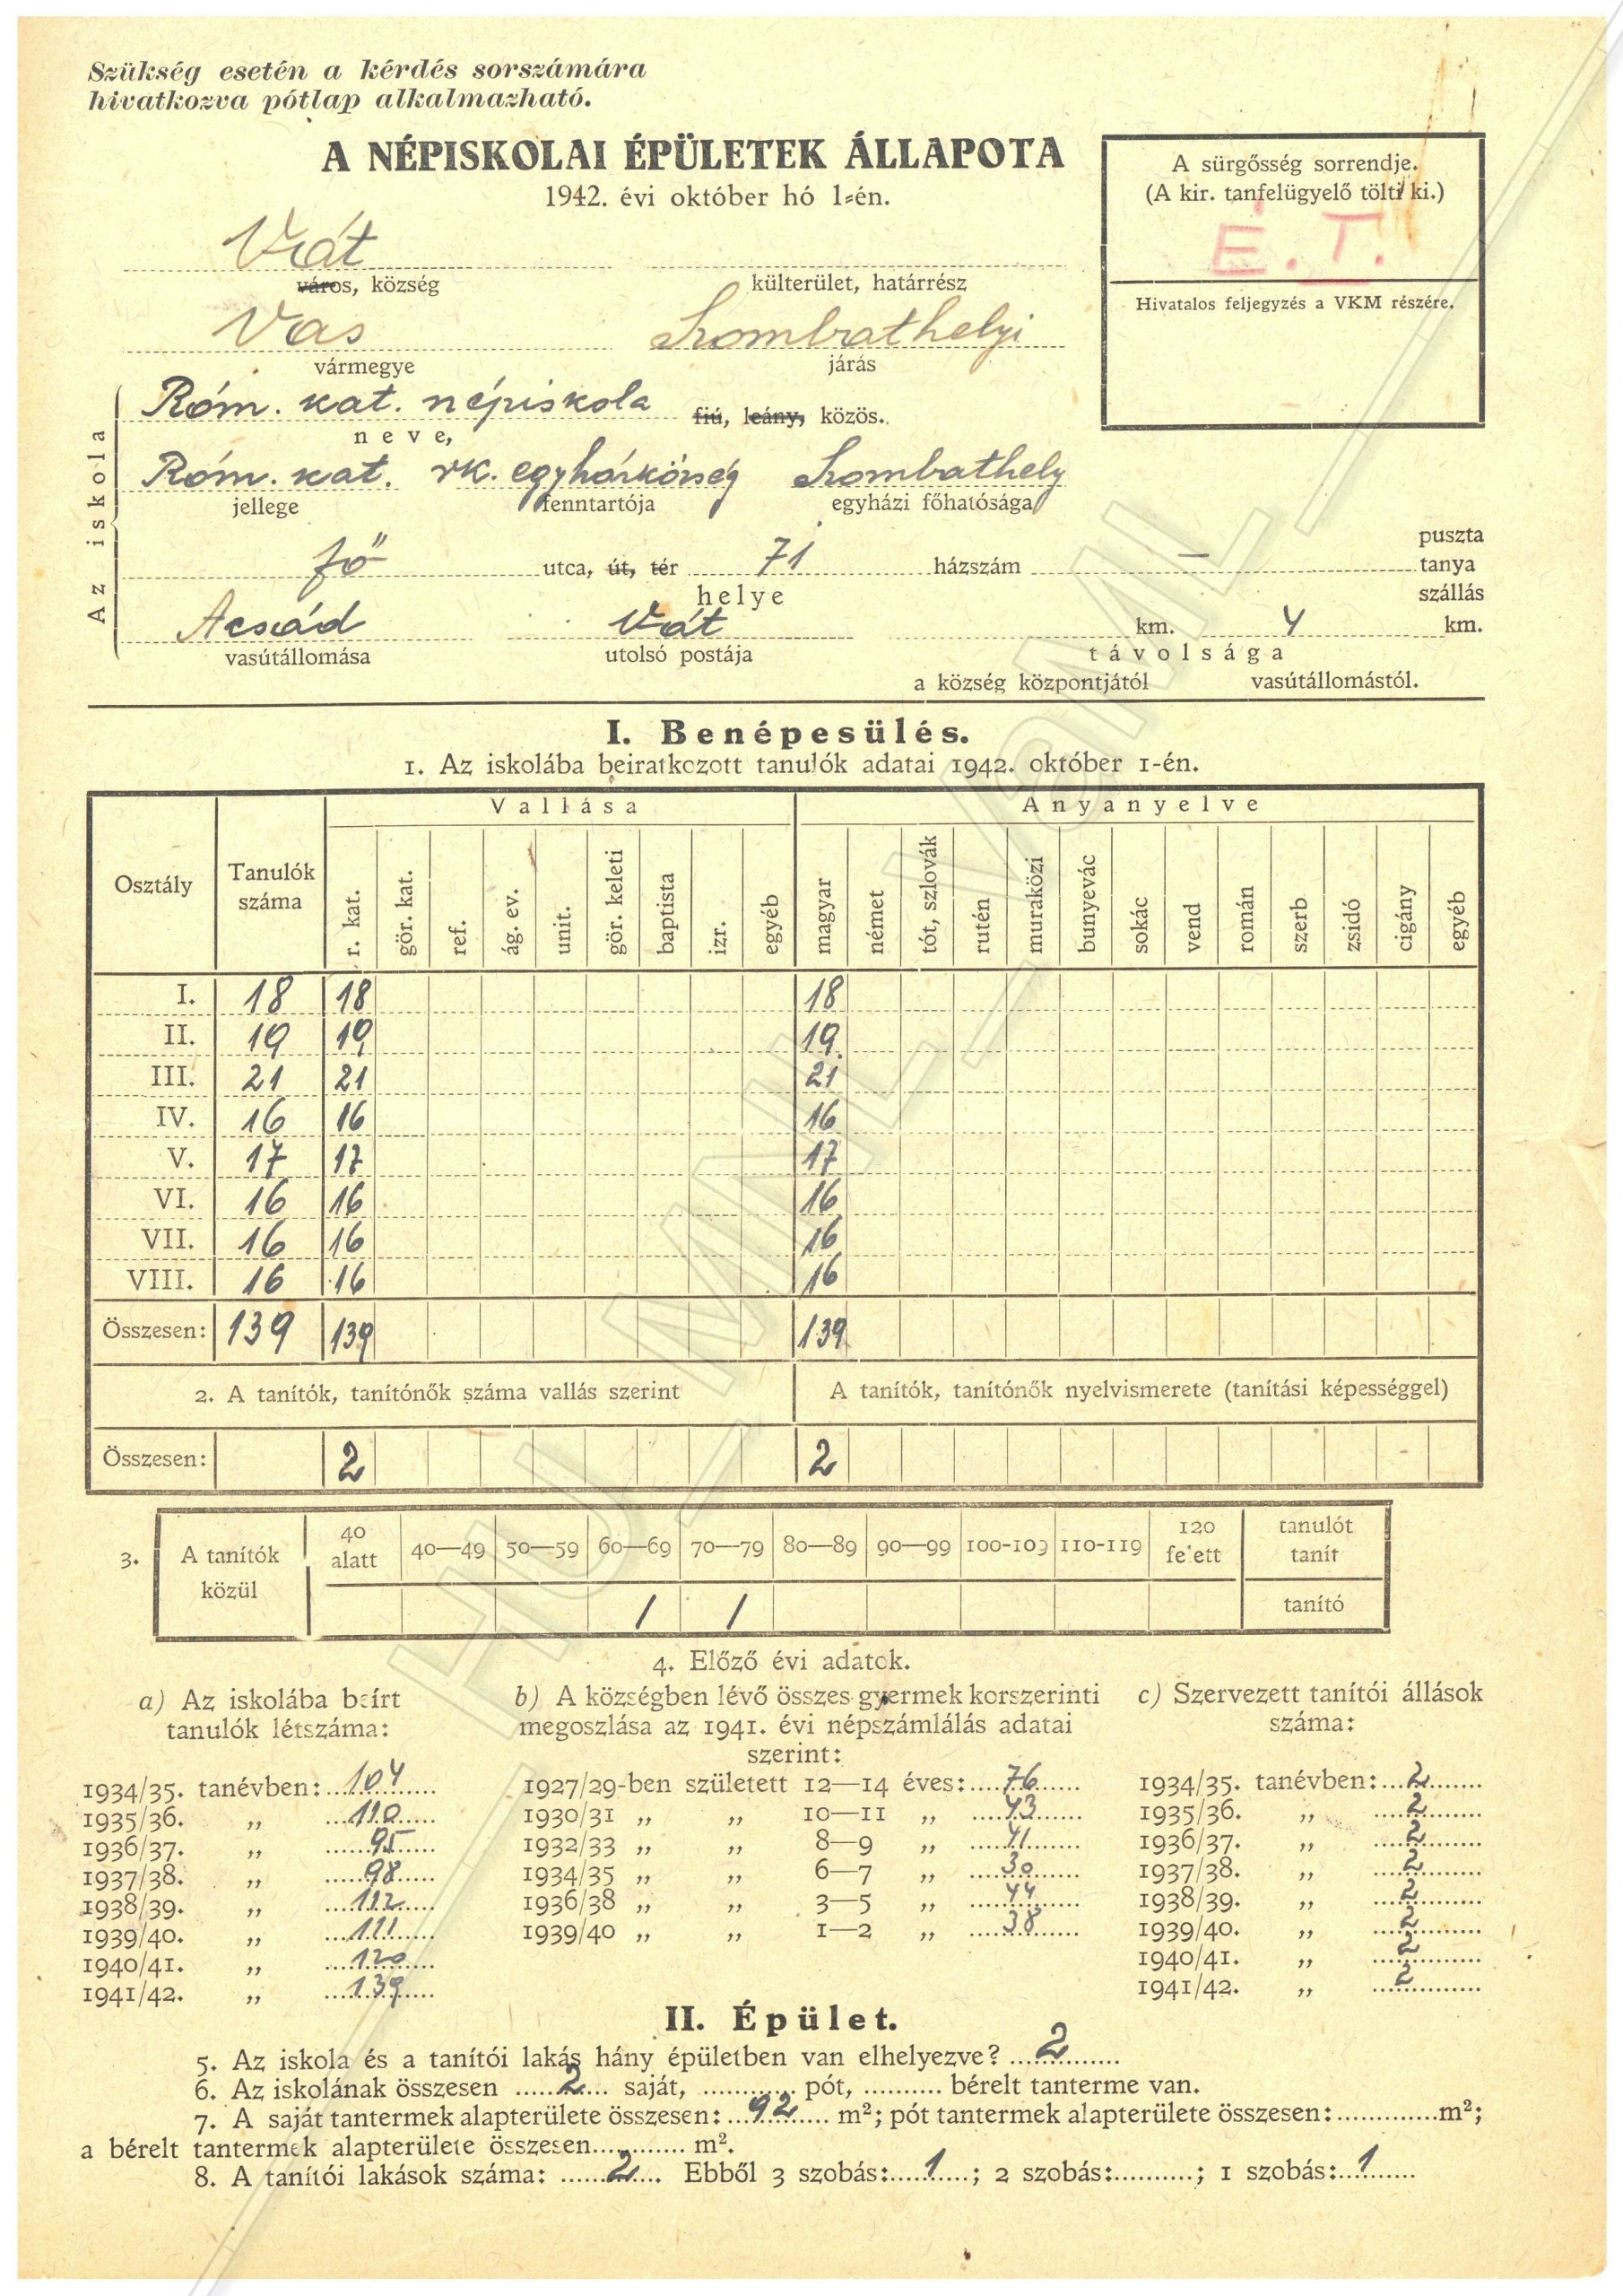 Szükség esetén a kérdés sorszámára
hivatkozva pótlap alkalmazható.
A NÉPISKOLAI ÉPÜLETEK ÁLLAPOTA
1942. évi október hó 1-én.
A sürgősség sorrendje.
(A kir. tanfelügyelő tölti ki.)
É. T.
Hivatalos feljegyzés a VKM részére.
Vát
város, község külterület, határrész
Vas Szombathelyi
vármegye járás
Az iskola
Róm. kat. népiskola fiú, leány, közös.
neve,
Róm. kat. rk. egyházközség Szombathely
jellege fenntartója egyházi főhatósága
puszta
fő utca, út, tér 71 házszám — tanya
helye szállás
Acsád Vát km. 4 km.
vasútállomása utolsó postája távolsága
a község központjától vasútállomástól.
I. Benépesülés.
1. Az iskolába beiratkozott tanulók adatai 1942. október 1-én.
Vallása Anyanyelve
Osztály Tanulók száma r. kat. gör. kat. ref. ág. ev. unit. gör. keleti baptista izr. egyéb magyar német tót, szlovák rutén muraközi bunyevác sokác vend román szerb zsidó cigány egyéb
I. 18 18 18
II. 19 19 19
III. 21 21 21
IV. 16 16 16
V. 17 17 17
VI. 16 16 16
VII. 16 16 16
VIII. 16 16 16
Összesen: 139 139 139
2. A tanítók, tanítónők száma vallás szerint A tanítók, tanítónők nyelvismerete (tanítási képességgel)
Összesen: 2 2
3. A tanítók közül 40 alatt 40—49 50—59 60—69 70—79 80—89 90—99 100-109 110-119 120 felett tanulót tanít
1 1 tanító
4. Előző évi adatok.
a) Az iskolába beírt b) A községben lévő összes gyermek korszerinti c) Szervezett tanítói állások
tanulók létszáma: megoszlása az 1941. évi népszámlálás adatai száma:
szerint:
1934/35. tanévben: 104 1927/29-ben született 12—14 éves: 76 1934/35. tanévben: 2
1935/36. „ 110 1930/31 „ „ 10—11 „ 43 1935/36. „ 2
1936/37. „ 95 1932/33 „ „ 8—9 „ 41 1936/37. „ 2
1937/38. „ 98 1934/35 „ „ 6—7 „ 30 1937/38. „ 2
1938/39. „ 112 1936/38 „ „ 3—5 „ 44 1938/39. „ 2
1939/40. „ 111 1939/40 „ „ 1—2 „ 38 1939/40. „ 2
1940/41. „ 120 1940/41. „ 2
1941/42. „ 139 1941/42. „ 2
II. Épület.
5. Az iskola és a tanítói lakás hány épületben van elhelyezve? 2
6. Az iskolának összesen 2 saját, pót, bérelt tanterme van.
7. A saját tantermek alapterülete összesen: 92 m²; pót tantermek alapterülete összesen: m²;
a bérelt tantermek alapterülete összesen m².
8. A tanítói lakások száma: 2. Ebből 3 szobás: 1; 2 szobás: ; 1 szobás: 1
HU_MNL_VaML